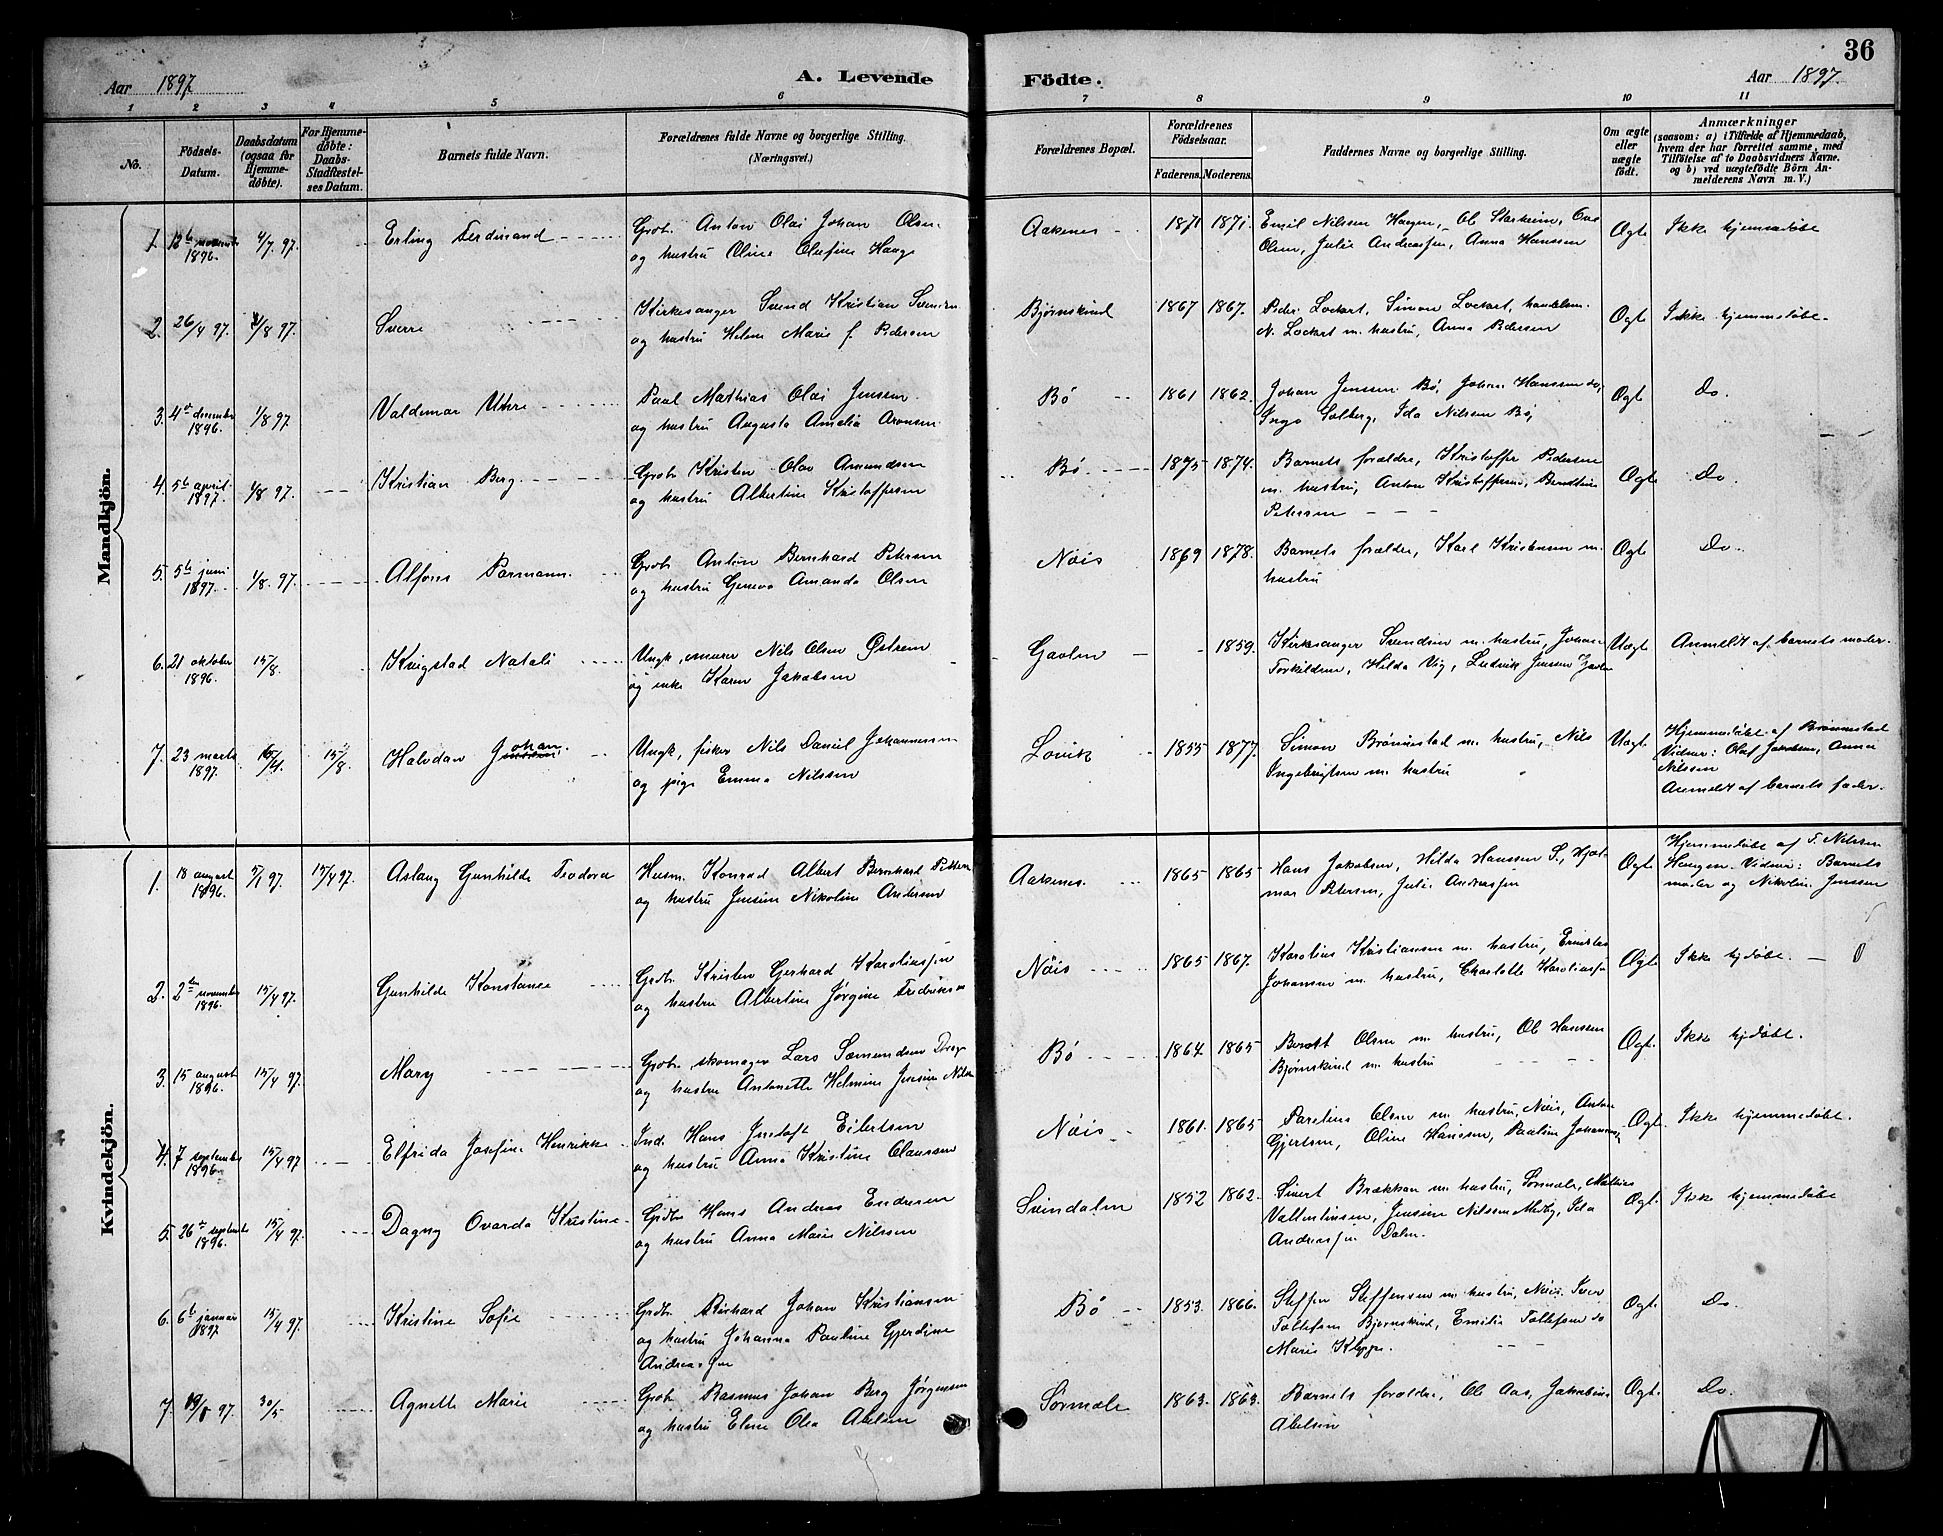 36
Aar 1897
A. Levende Födte.
Aar 1897.
1 2 3 4 5 6 7 8 9 10 11
No.
Födsels-Datum.
Daabsdatum (ogsaa for Hjemme-döbte).
For Hjemme-døbte: Daabs-Stadfæstel-ses Datum.
Barnets fulde Navn.
Forældrenes fulde Navne og borgerlige Stilling.
(Næringsvei.)
Forældrenes Bopæl.
Forældrenes Födselsaar.
Faderens. Moderens.
Faddernes Navne og borgerlige Stilling.
Om ægte eller uægte födt.
Anmærkninger
(saasom: a) i Tilfælde af Hjemmedaab, hvem der har forrettet samme, med Tilföielse af to Daabsvidners Navne, og b) ved uægtefödte Börn An-melderens Navn m. V.)
Mandkjön.
1. 12te november 1896. 4/7 97. Erling Ferdinand Grbr. Anton Olai Johan Olsen
og hustru Oline Olufine Hauge
Aakenes 1871 1871. Emil Nilssen Haugen, Ol. Starheim,
Olsen, Julie Andreassen, Anna Hanssen Ægte Ikke hjemmedøbt
2. 26/4 97. 1/8 97. Sverre Kirkesanger Svend Kristian Svendsen
og hustru Helene Marie f. Pedersen
Bjørnskind 1867 1867. Peder Lockert, Simon Lockert, handelsm.
N. Lockert m. hustru, Anna Pedersen Ægte Ikke hjemmedøbt.
3. 4de december 1896. 1/8 97. Valdemar Uhre Paal Mathias Olai Jensen
og hustru Augusta Amalia Aronsen
Bø 1861 1862. Johan Jenssen Bø, Johan Hanssen do,
Inga Solberg, Ida Nilssen Bø, Ægt Do.
4. 5te april 1897. 1/8 97. Kristian Berg Grbr. Kristen Olav Amundsen
og hustru Albertine Kristoffersen
Bø 1875 1874. Barnets forældre, Kristoffer Pedersen
m. hustru, Anton Kristoffersen,
Petersen Ægte Do.
5. 5te juni 1897. 1/8. 97. Alfons Parmann Grbr. Anton Bernhard Petersen
og hustru Geneva Amanda Olsen
Nøis 1869 1878. Barnets forældre, Karl Kristensen m.
hustru Ægte Do.
6. 21 oktober 1896. 15/8. Krigstad Natali Ungk., murer Nils Olsen Østrem
og enke Karen Jakobsen
Gavlen 1859. Kirkesanger Svendsen m. hustru, Johan
Torkildsen, Hilda Vig, Ludvik Jensen Uægt Anmeldt af barnets moder.
7. 23 marts 1897. 15/8. Halvdan Johan. Ungk., fisker Nils Daniel Johannessen
og pige Emma Nilssen
Lovik 1855 1877. Simon Brønnestad m. hustru, Nils
Ingebrigtsen m. hustru Uægt. Hjemmedøbt af Brønnestad
Vidner: Olaf Jakobsen, Anna
Nilssen
Anmeldt af barnets fader.
Kvindekjön.
1. 18 august 1896. 5/1 97. 15/4 97. Aslaug Gunhilde Teodora Husm. Konrad Albert Bernhard Pettersen
og hustru Jensine Nikoline Andersen
Aakenes 1865 1865 Hans Jakobsen, Hilda Hanssen S., Hjal-
mar Petersen, Julie Andreassen Ægte Hjemmedøbt af F. Nilssen
Haugen. Vidner: Barnets
moder og Nikoline Jenssen
2. 2den november 1896. 15/4 97. Gunhilde Konstanse Grdbr. Kristen Gerhard Karoliussen
og hustru Albertine Jørgine Fredriksen
Nøis 1865 1867. Karolius Kristiansen m. hustru,
Johansen m. hustru, Charlotte Karoliussen Ægte Ikke hjdøbt.
3. 15 august 1896. 15/4 97. Mary Grbr. skomager Lars Sæmundsen
og hustru Antonette Helmine Jensine Nilsen
Bø 1864 1865 Berntt Olsen m. hustru, Ol. Hanssen
Bjørnskind m. hustru Ægt. Ikke hjdøbt.
4. 7 september 1896. 15/4 97 Elfrida Josefine Henrikke Ind. Hans Justoft Eilertsen
og hustru Anna Kristine Claussen
Nøis 1861. 1865 Parelius Olsen m. hustru, Nøis, Anton
Gjertsen, Oline Hanssen, Pauline Johannes. Ægt. Ikke hjemmedøbt.
5. 26de september 1896. 15/4 97. Dagny Ovarda Kristine Grdbr. Hans Andreas Endresen
og hustru Anna Marie Nilssen
Svindalen 1852 1862. Sivert Brækkan m. hustru, Sørmæle,
Vallentinsen, Jensine Nilssen Medby, Ida
Andreassen Dalen. Ægt. Ikke hjemmedøbt
6. 6te januar 1897. 15/4 97. Kristine Sofie Grdbr. Rikhard Johan Kristiansen
og hustru Johanna Pauline Gjerdine
Andreassen
Bø 1853. 1866. Steffen Steffensen m. hustru, Nøis,
Tollefsen Bjørnskind, Emilie Tollefsen do
Marie Kleppe. Ægt. Do.
7. 97. 30/5 Agnette Marie Grbr. Rasmus Johan Berg Jørgensen
og hustru Elene Olea Abelsen
Sørmæle 1863. 1863. Barnets forældre, Ol. Aas, Jakobine
Abelsen Ægt. Do.